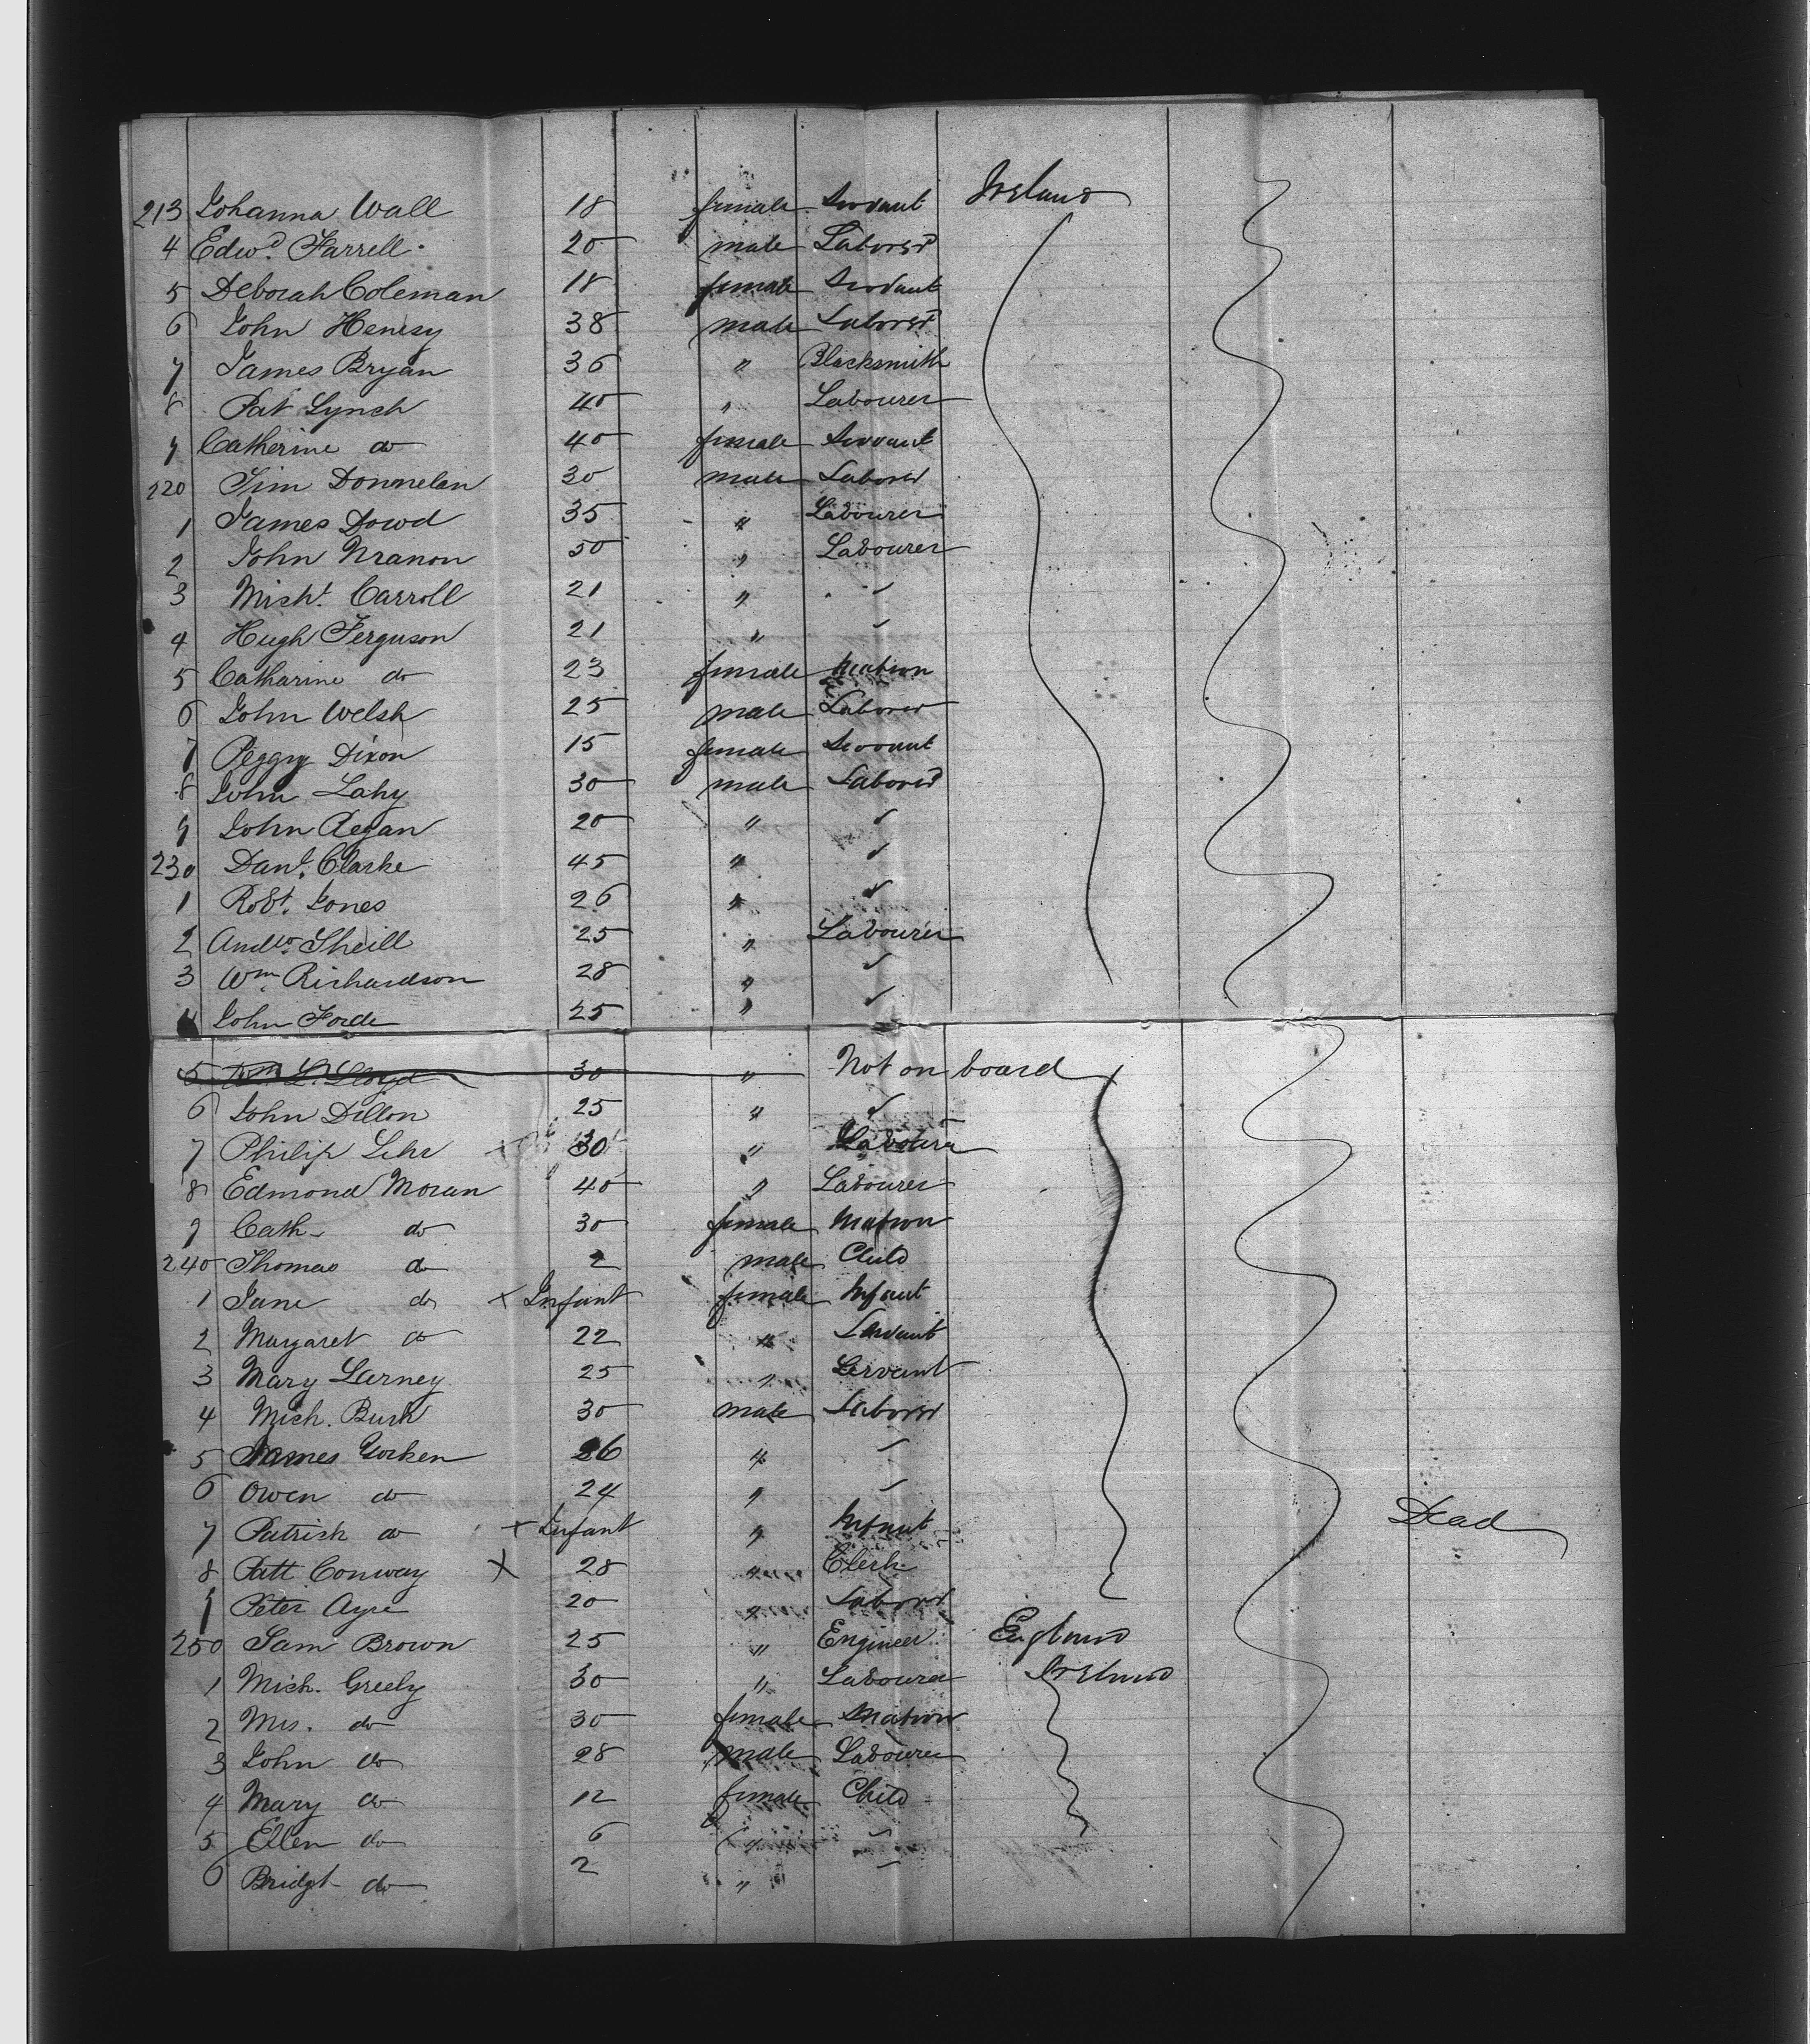 213 Johanna Wall 18 female Servant Ireland
4 Edwd. Farrell 20 male Laborer
5 Deborah Coleman 18 female Servant
6 John Henesy 38 male Laborer
7 James Bryan 36 " Blacksmith
8 Pat Lynch 40 " Labourer
9 Catherine do 40 female Servant
220 Tim Donnelan 30 male Laborer
1 James Dowd 35 " Labourer
2 John 50 " Labourer
3 Michl. Carroll 21 " "
4 Hugh Ferguson 21 " "
5 Catharine do 23 female Matron
6 John Welsh 25 male Laborer
7 Peggy Dixon 15 female Servant
8 John Lahy 30 male Laborer
9 John Regan 20 " "
230 Danl. Clarke 45 " "
1 Robt. Jones 26 " "
2 Andw. Sheill 25 " Labourer
3 Wm. Richardson 28 " "
4 John Forde 25 " "
5 Wm. L. Lloyd 30 " Not on board
6 John Dillon 25 " "
7 Philip 30 " Labourer
8 Edmond Moran 40 " Labourer
9 Cath do 30 female Matron
240 Thomas do 2 male Child
1 Jane do x Infant female Infant
2 Margaret do 22 " Servant
3 Mary Larney 25 " Servant
4 Mich. Burk 30 male Laborer
5 James 26 " "
6 Owen do 24 " "
7 Patrick do x Infant " Infant Dead
8 Patt Conway x 28 " Clerk
9 Peter Ayre 20 " Laborer
250 Sam Brown 25 " Engineer England
1 Mich. Greely 30 " Labourer Ireland
2 Mrs. do 30 female Matron
3 John do 28 male Labourer
4 Mary do 12 female Child
5 Ellen do 6 " "
6 Bridgt do 2 " "